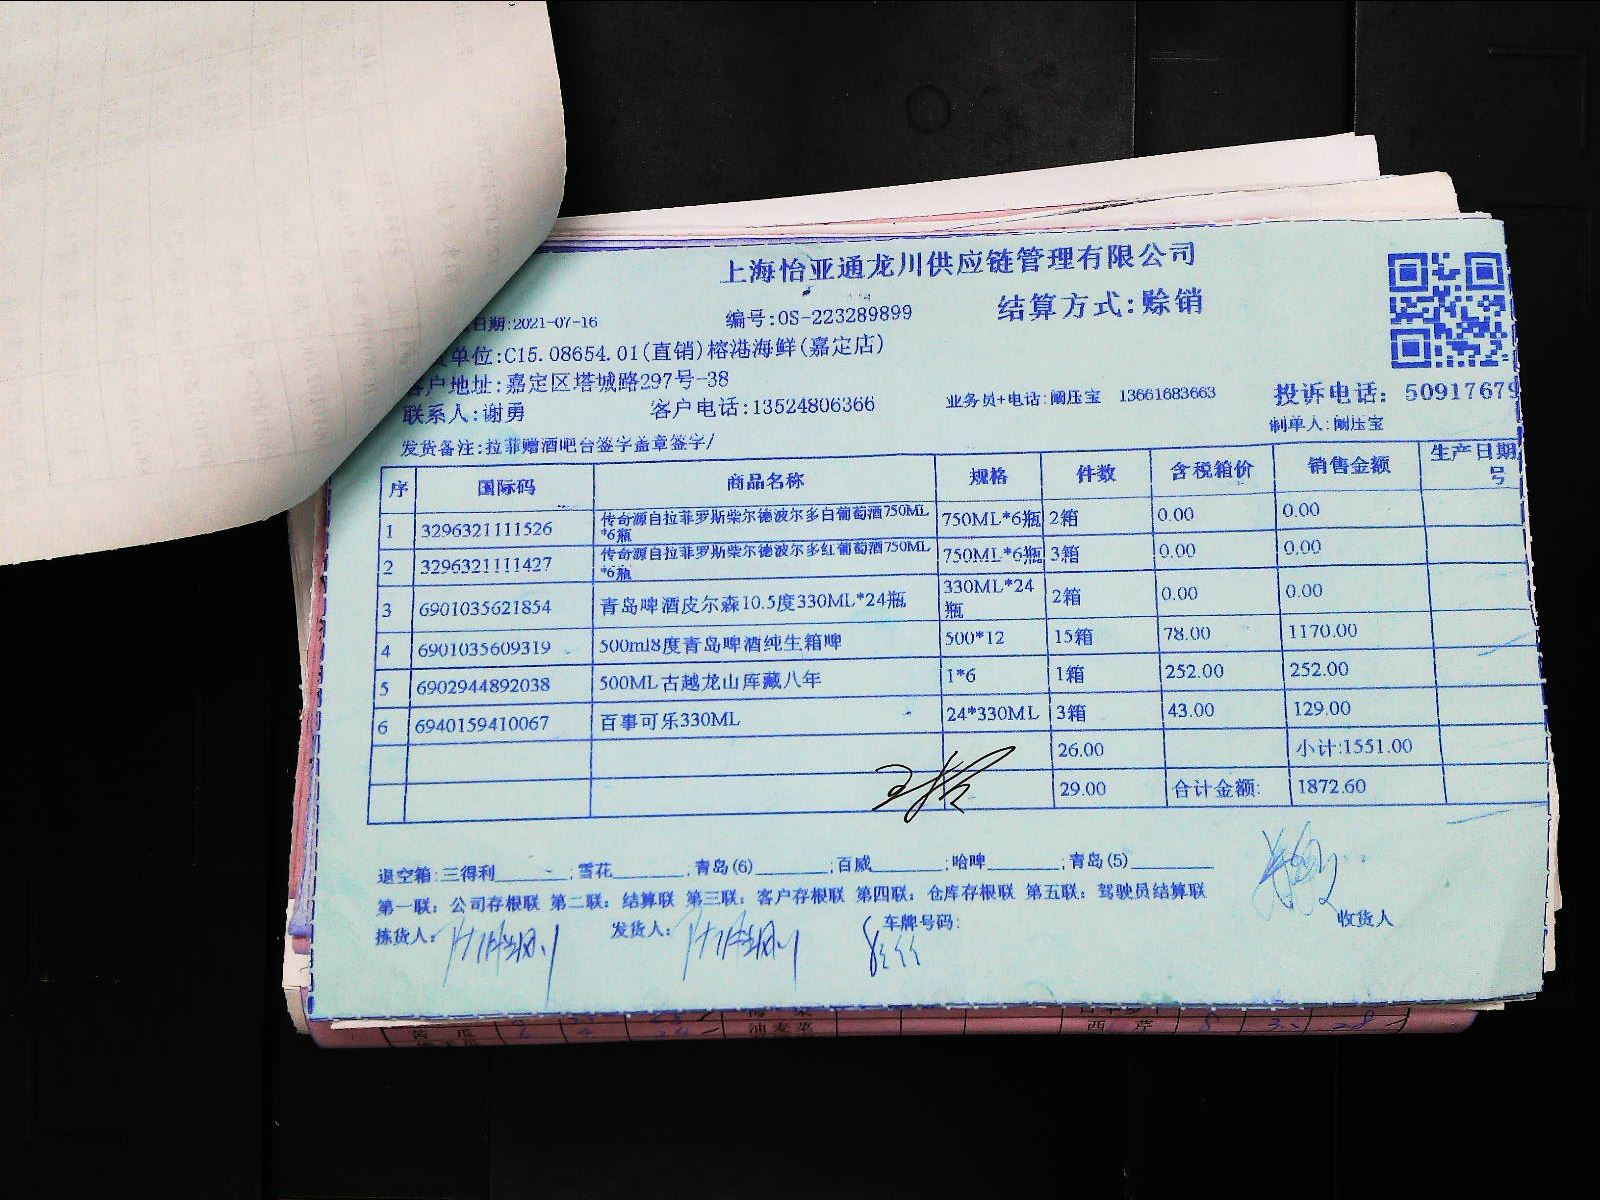 上海怡亚通龙川供应链管理有限公司
日期:2021-07-16 编号:OS-223289899 结算方式:赊销
单位:C15.08654.01(直销)榕港海鲜(嘉定店)
客户地址:嘉定区塔城路297号-38
联系人:谢勇 客户电话:13524806366 业务员+电话:阚压宝 13661683663 投诉电话: 50917679
制单人:阚压宝
发货备注:拉菲赠酒吧台签字盖章签字/
序 国际码 商品名称 规格 件数 含税箱价 销售金额 生产日期 号
1 3296321111526 传奇源自拉菲罗斯柴尔德波尔多白葡萄酒750ML*6瓶 750ML*6瓶 2箱 0.00 0.00
2 3296321111427 传奇源自拉菲罗斯柴尔德波尔多红葡萄酒750ML*6瓶 750ML*6瓶 3箱 0.00 0.00
3 6901035621854 青岛啤酒皮尔森10.5度330ML*24瓶 330ML*24瓶 2箱 0.00 0.00
4 6901035609319 500ml8度青岛啤酒纯生箱啤 500*12 15箱 78.00 1170.00
5 6902944892038 500ML古越龙山库藏八年 1*6 1箱 252.00 252.00
6 6940159410067 百事可乐330ML 24*330ML 3箱 43.00 129.00
26.00 小计:1551.00
29.00 合计金额: 1872.60
退空箱:三得利______;雪花______;青岛(6)______;百威______;哈啤______;青岛(5)______
第一联: 公司存根联 第二联: 结算联 第三联: 客户存根联 第四联: 仓库存根联 第五联: 驾驶员结算联
拣货人: 发货人: 车牌号码: 收货人
油麦菜 西芹